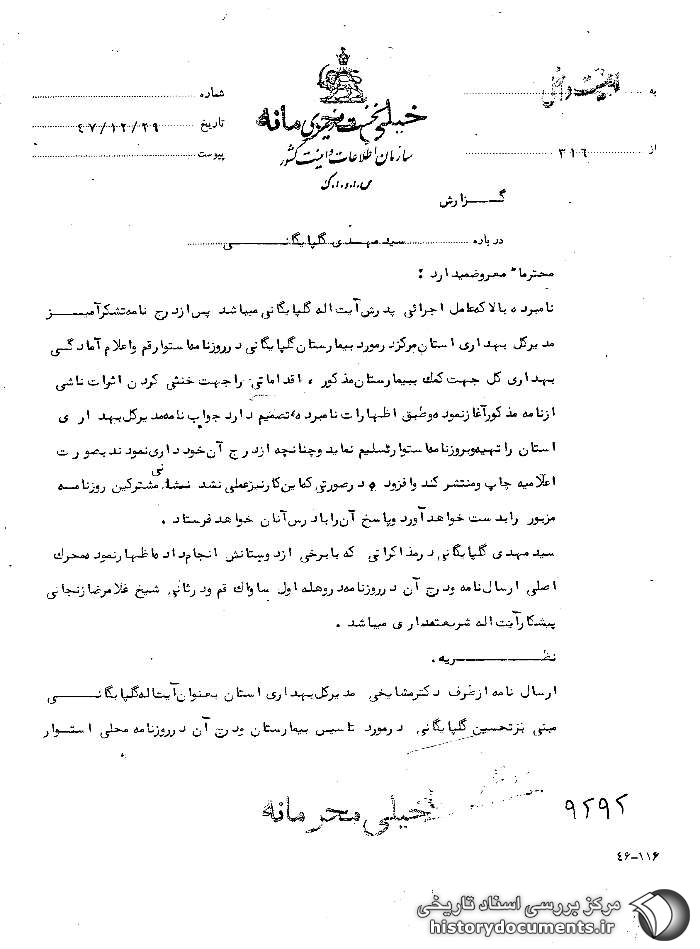 به
شماره
تاریخ ۴۷/۱۲/۲۹
از ۳۱۶
پیوست
خیلی محرمانه
نخست وزیری
سازمان اطلاعات و امنیت کشور
س.ا.و.ا.ک
گزارش
درباره سید مهدی گلپایگانی
محترماً معروضمیدارد :
نامبرده بالا که عامل اجرائی پدرش آیت اله گلپایگانی میباشد پس از درج نامه تشکرآمیز
مدیرکل بهداری استان مرکز در مورد بیمارستان گلپایگانی در روزنامه استوار قم و اعلام آمادگی
بهداری کل جهت کمک ببیمارستان مذکور ، اقداماتی را جهت خنثی کردن اثرات ناشی
از نامه مذکور آغاز نموده و طبق اظهارات نامبرده تصمیم دارد جواب نامه مدیرکل بهداری
استان را تهیه و بروزنامه استوار تسلیم نماید و چنانچه از درج آن خودداری نمودند بصورت
اعلامیه چاپ و منتشر کند و افزوده در صورتی که این کار نیز عملی نشد نشانی مشترکین روزنامه
مزبور را بدست خواهد آورد و پاسخ آن را بآدرس آنان خواهد فرستاد .
سید مهدی گلپایگانی در مذاکراتی که با برخی از دوستانش انجام داده اظهار نموده محرک
اصلی ارسال نامه و درج آن در روزنامه در وهله اول ساواک قم و در ثانی شیخ غلامرضا زنجانی
پیشکار آیت اله شریعتمداری میباشد .
نظریه .
ارسال نامه از طرف دکتر مشایخی مدیرکل بهداری استان بعنوان آیت اله گلپایگانی
مبنی بر تحسین گلپایگانی در مورد تاسیس بیمارستان و درج آن در روزنامه محلی استوار
خیلی محرمانه
۹۲۹۲
۴۶-۱۱۶
مرکز بررسی اسناد تاریخی
historydocuments.ir